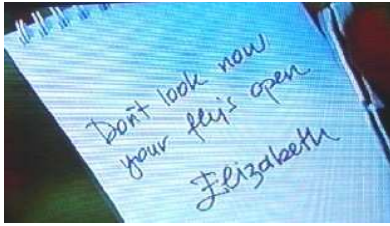 Don't look now
your fly's open
Elizabeth